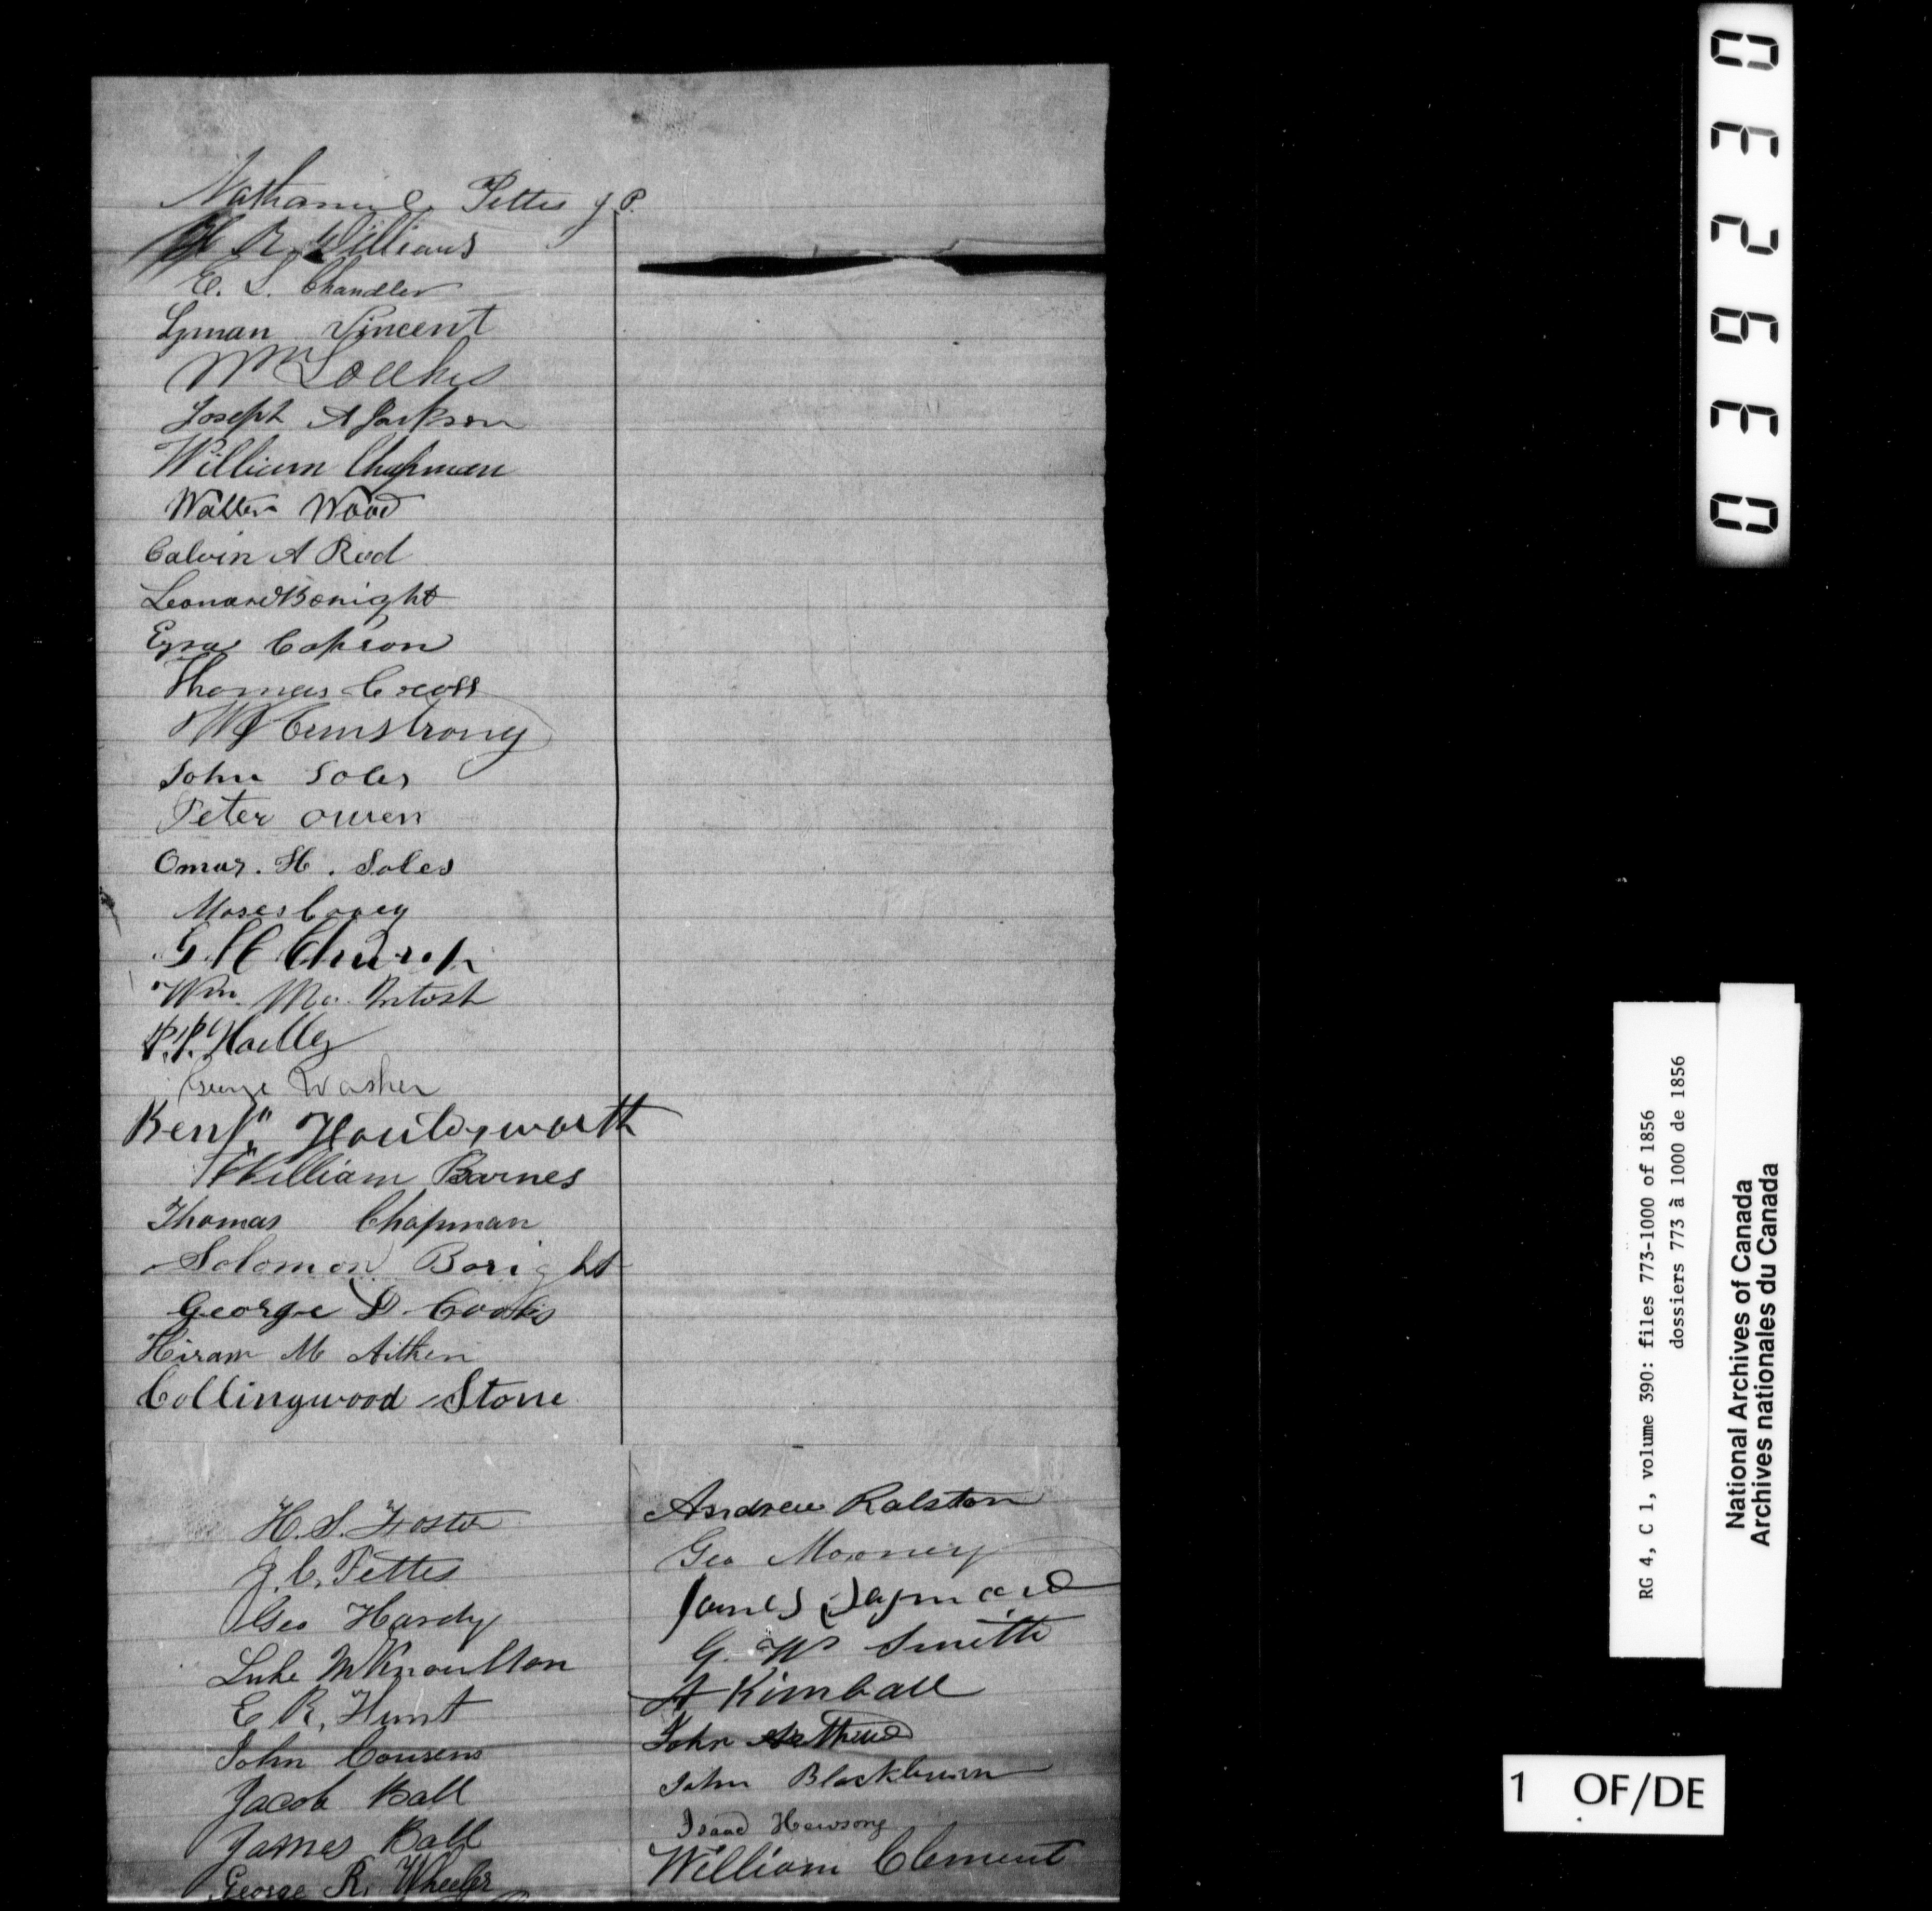 Nathaniel Pettes J.P.
H R Williams
E. L. Chandler
Lyman Vincent
Wm
Joseph A Jackson
William Chapman
Walter Wood
Calvin A Reed
Leonard Boright
Ezra Capron
Thomas Cross
Armstrong
John Soles
Peter Owen
Omar. H. Soles
Moses Covey
G H Church
Wm. Mc. Intosh
P.P.
George Washer
Benjn. Houldsworth
William Barnes
Thomas Chapman
Solomon Boright
George D. Cooks
Hiram M Aitken
Collingwood Stone
H. S. Foster
J. C. Pettes
Geo Hardy
Luke M Knowlton
E. R. Hunt
John Cousens
Jacob Ball
James Ball
George R. Wheeler
Andrew Ralston
Geo Mooney
James
G. W. Smith
A Kimball
John
John Blackburn
Isaac Hewsong
William Clement
039230
RG 4, C 1, volume 390: files 773-1000 of 1856
dossiers 773 à 1000 de 1856
National Archives of Canada
Archives nationales du Canada
1 OF/DE